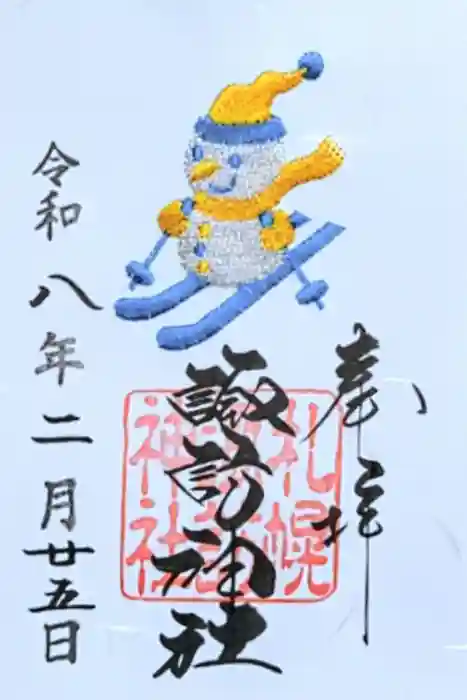 奉拝
札幌
諏訪
神社
諏訪神社
令和八年二月廿五日